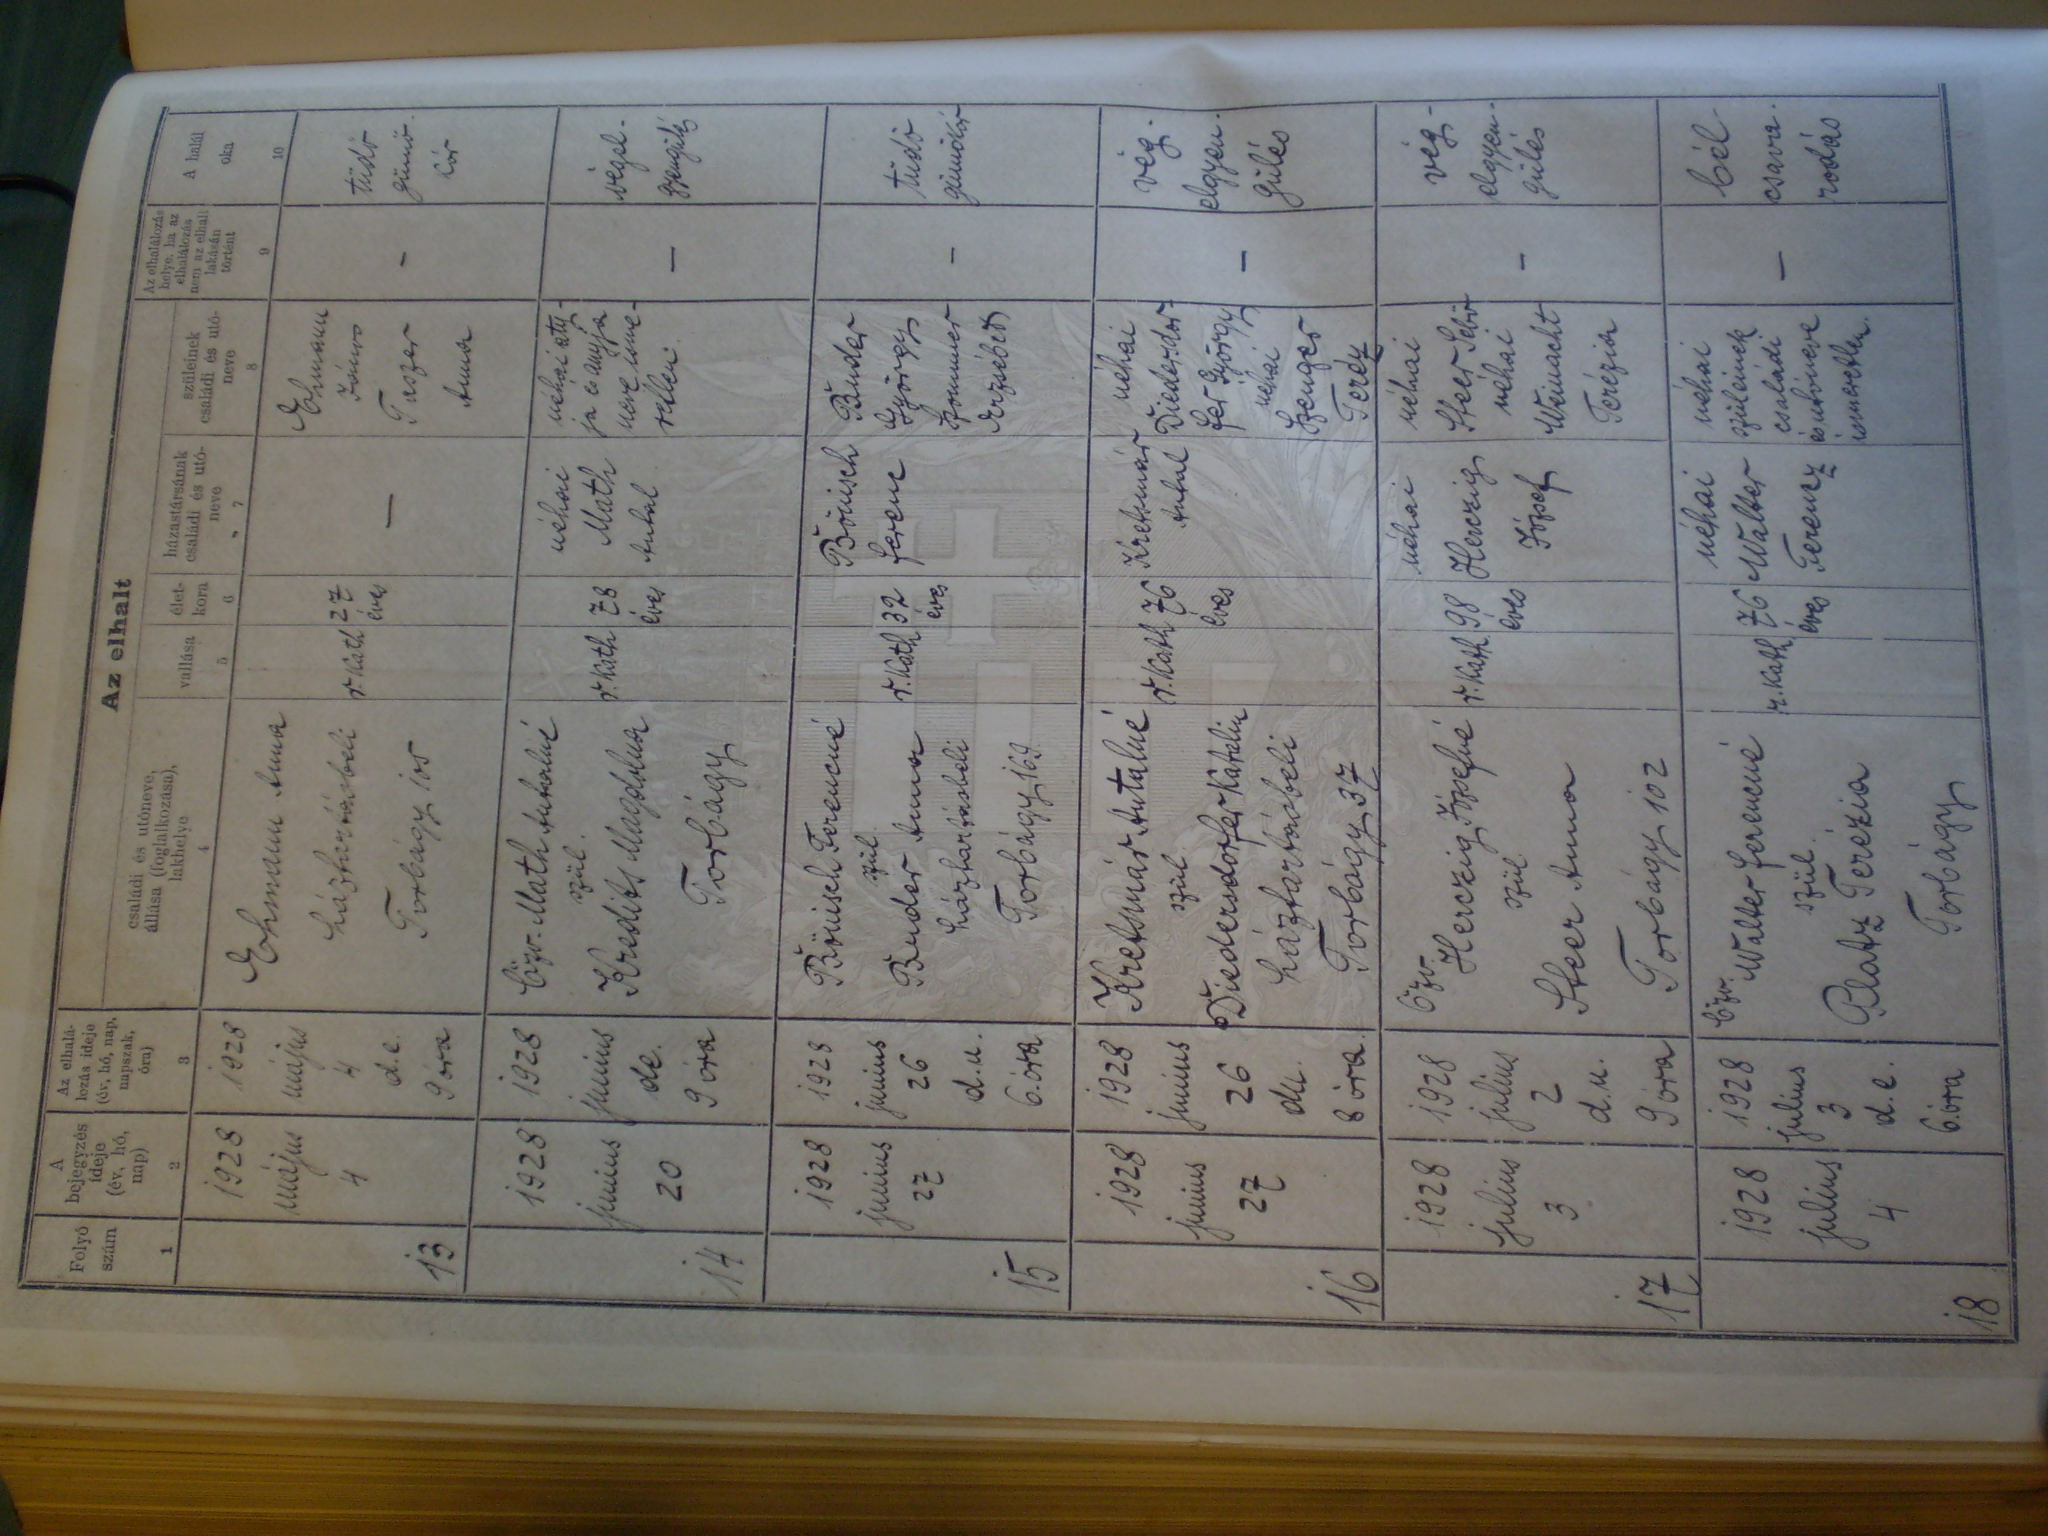 Az elhalt
Folyó
szám
A
bejegyzés
ideje
(év, hó,
nap)
Az elhalá-
lozás ideje
(év, hó, nap,
napszak,
óra)
családi és utóneve,
állása (foglalkozása),
lakhelye
vallása
élet-
kora
házastársának
családi és utó-
neve
szüleinek
családi és utó-
neve
Az elhalálozás
helye, ha az
elhalálozás
nem az elhalt
lakásán
történt
A halál
oka
1
2
3
4
5
6
7
8
9
10
13
1928
május
4
1928
május
4
d.e.
9 óra
Ehmann Anna
háztartásbeli
Torbágy 105
r. kath
27
éves
—
Ehmann
János
Trászer
Anna
—
tüdő
gümő-
kór
14
1928
junius
20
1928
junius
de.
9 óra
Özv. Math Antalné
szül.
Kredits Magdolna
Torbágy
r. kath
78
éves
néhai
Math
Antal
néhai aty-
ja és anyja
neve isme-
retlen.
—
végel-
gyengülés
15
1928
junius
27
1928
junius
26
d.u.
6. óra
Bönisch Ferencné
szül.
Binder Anna
háztartásbeli
Torbágy 169.
r. kath
32
éves
Bönisch
Ferenc
Binder
György
Erzsébet
—
tüdő
gümőkór
16
1928
junius
27
1928
junius
26
du.
8 óra.
Kretsmár Antalné
szül.
Diedersdorfer Katalin
háztartásbeli
Torbágy 37
r. kath
76
éves
Kretsmár
Antal
néhai
Diedersdor-
fer György
néhai
Szenger
Teréz
—
vég-
elgyen-
gülés
17
1928
julius
3
1928
julius
2
d.u.
9 óra
Özv.
Herczig Józsefné
szül.
Steer Anna
Torbágy 102
r. kath
98
éves
néhai
Herczig
József
néhai
Steer Sebő
néhai
Weinacht
Terézia
—
vég-
elgyen-
gülés
18
1928
julius
4
1928
julius
3
d.e.
6. óra
Özv.
Walter Ferencné
szül.
Platz Terézia
Torbágy
r. kath
76
éves
néhai
Walter
Ferencz
néhai
szüleinek
családi
és utóneve
ismeretlen.
—
bél-
csava-
rodás